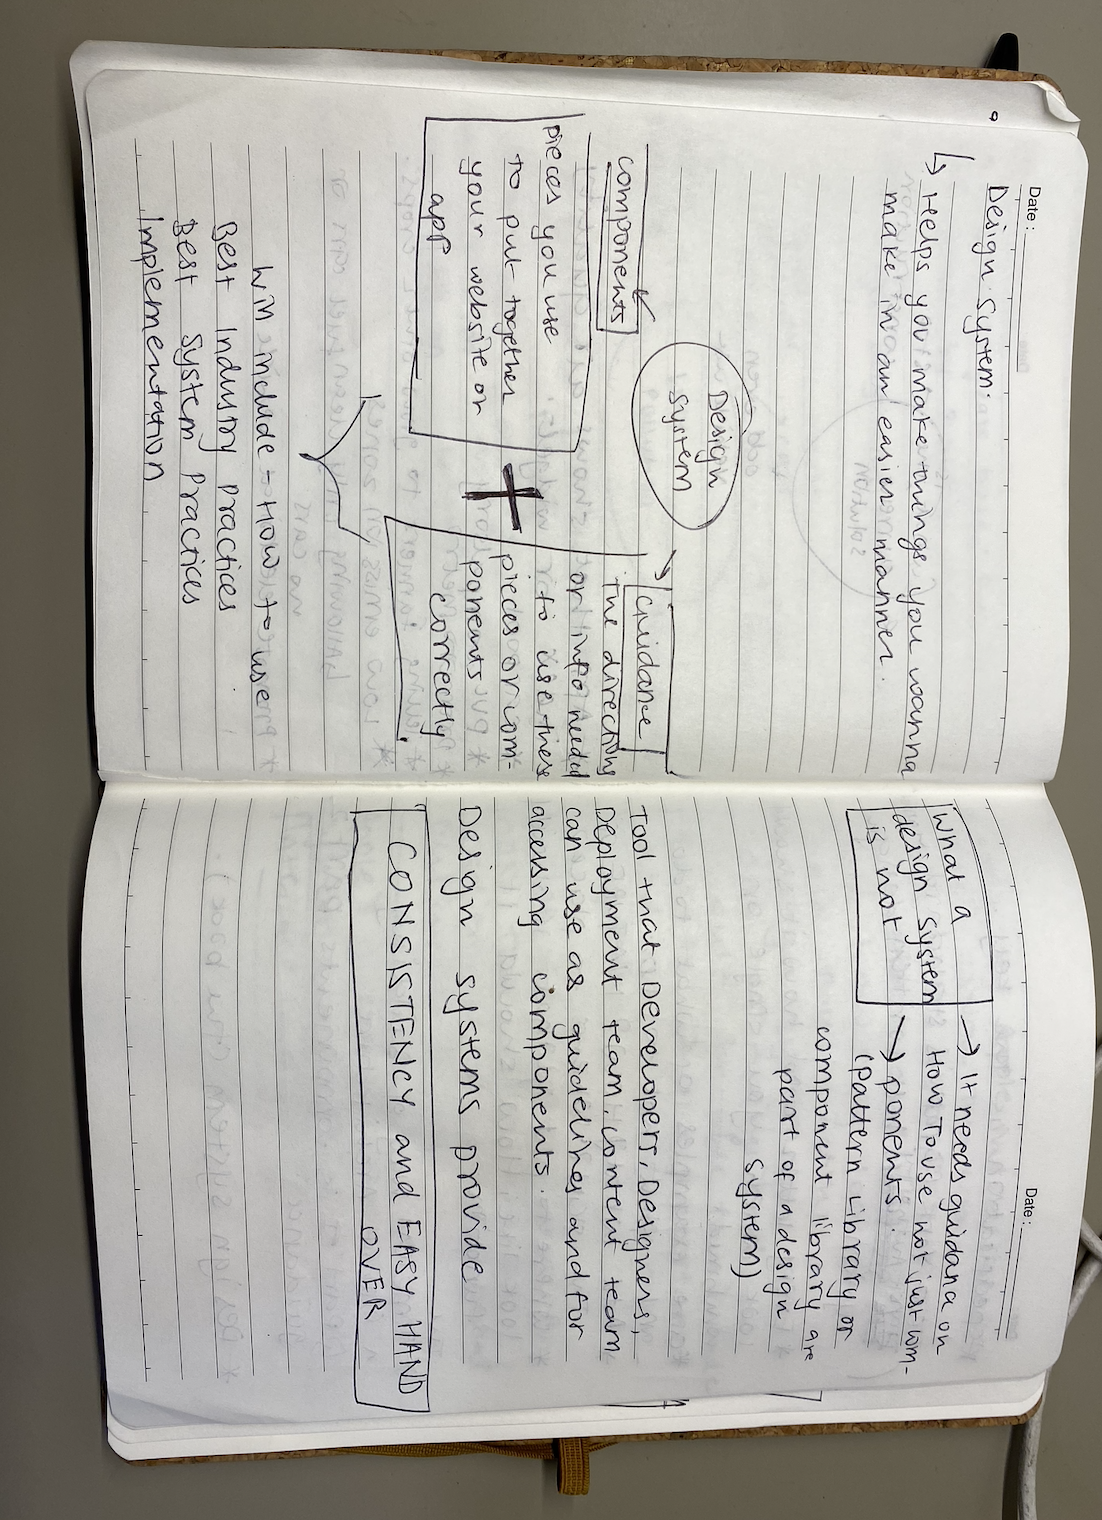 Date:
Design System.
↳ Helps you make things you wanna
make in an easier manner.
Design
System
components
pieces you use
to put together
your website or
app
+
Guidance
The directions
or info needed
to use these
pieces or com-
ponents
correctly
Will include - How to use
Best Industry Practices
Best System Practices
Implementation
Date:
What a
design system
is not
→ It needs guidance on
How To use not just com-
→ ponents.
(pattern library or
component library are
part of a design
system)
Tool that Developers, Designers,
Deployment team, content team
can use as guidelines and for
accessing components.
Design systems provide
CONSISTENCY and EASY HAND
OVER